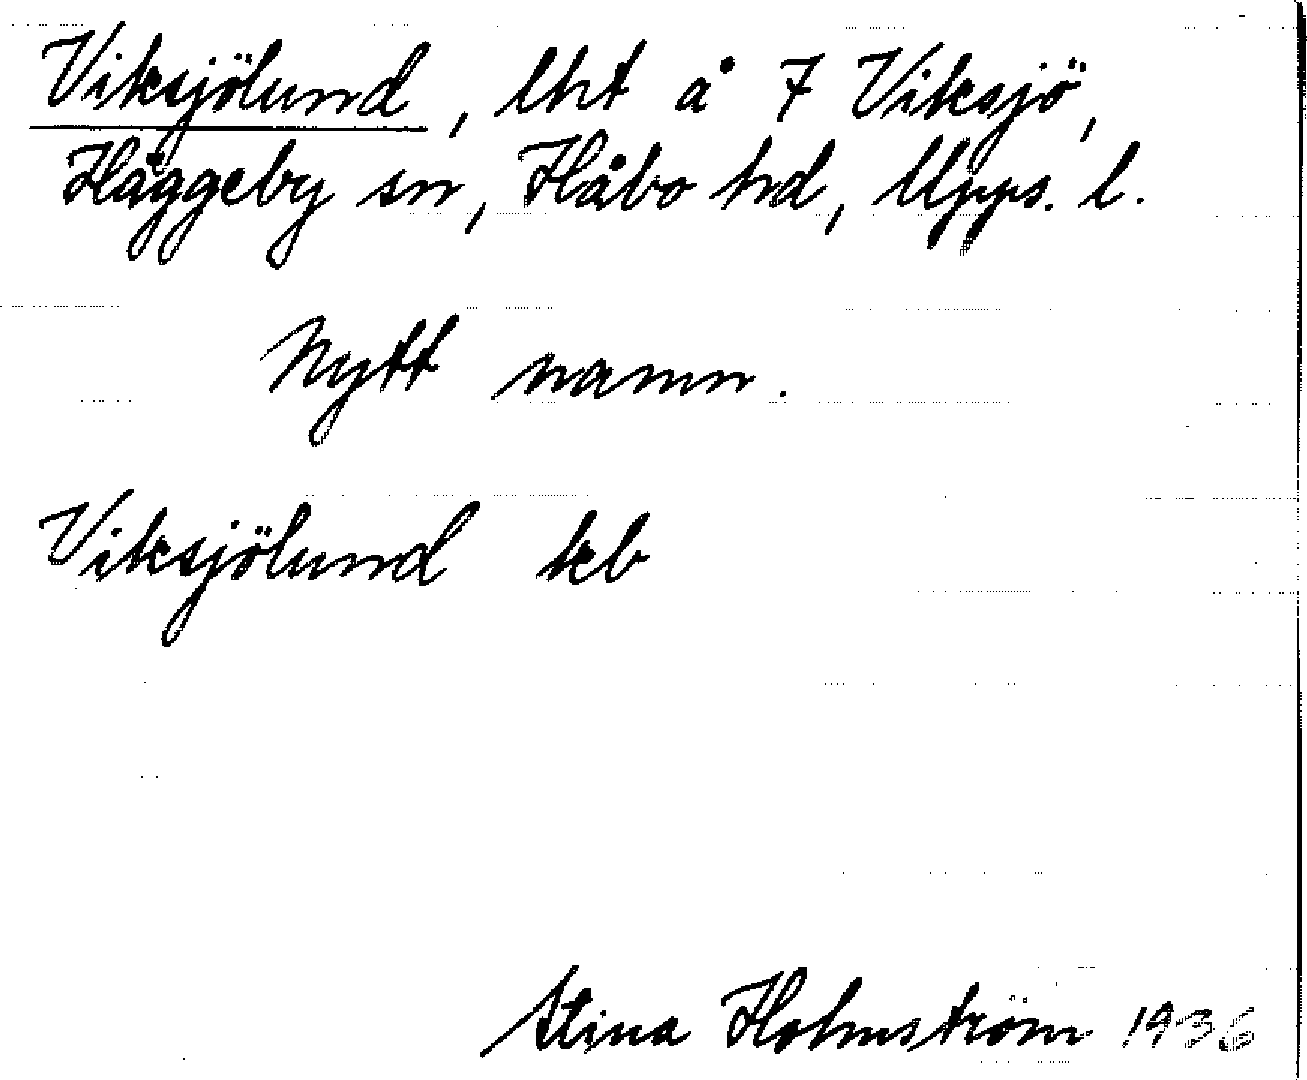 Viksjölund, lht å 7 Viksjö,
Häggeby sn, Håbo hd, Upps. l.
Nytt namn.
Viksjölund kb
Stina Holmström 1936